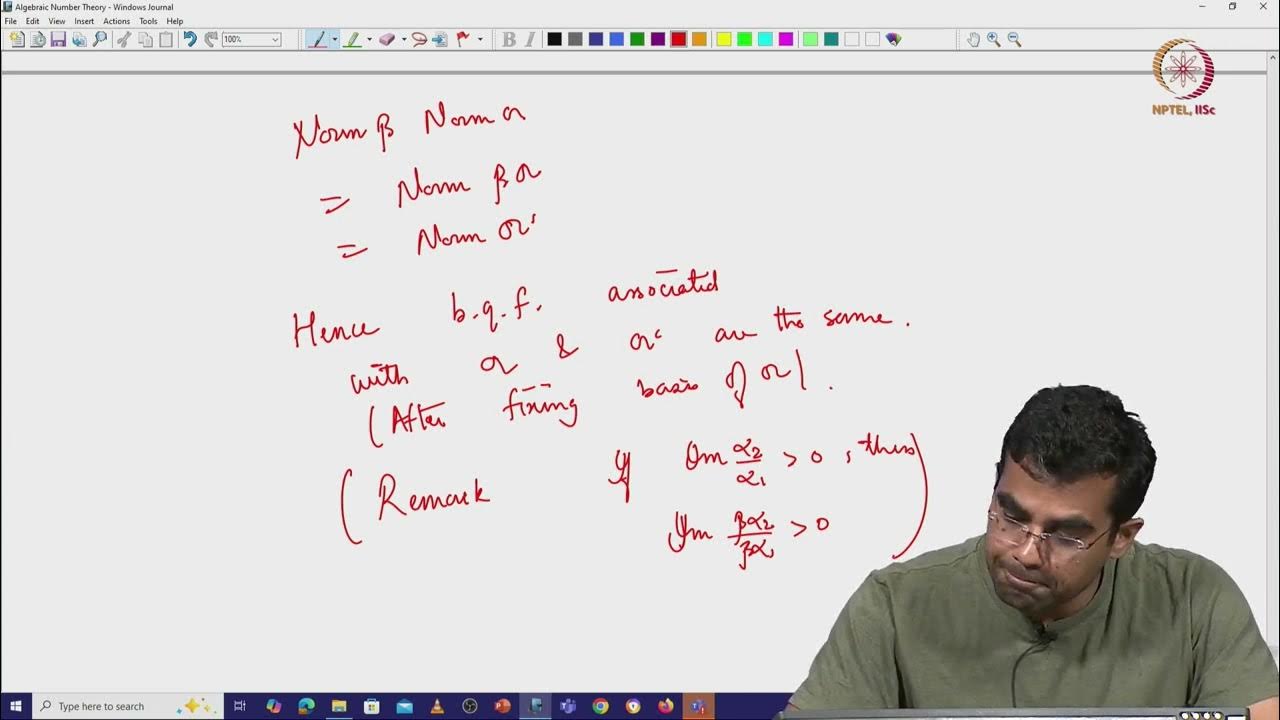 Algebraic Number Theory - Windows Journal
File Edit View Insert Actions Tools Help
100%
B I
NPTEL, IISc
Norm β Norm α
= Norm β α
= Norm α'
Hence b.q.f. associated
with α & α' are the same.
(After fixing basis of α).
(Remark If Im α₂/α₁ > 0, then
Im βα₂/βα₁ > 0)
Type here to search